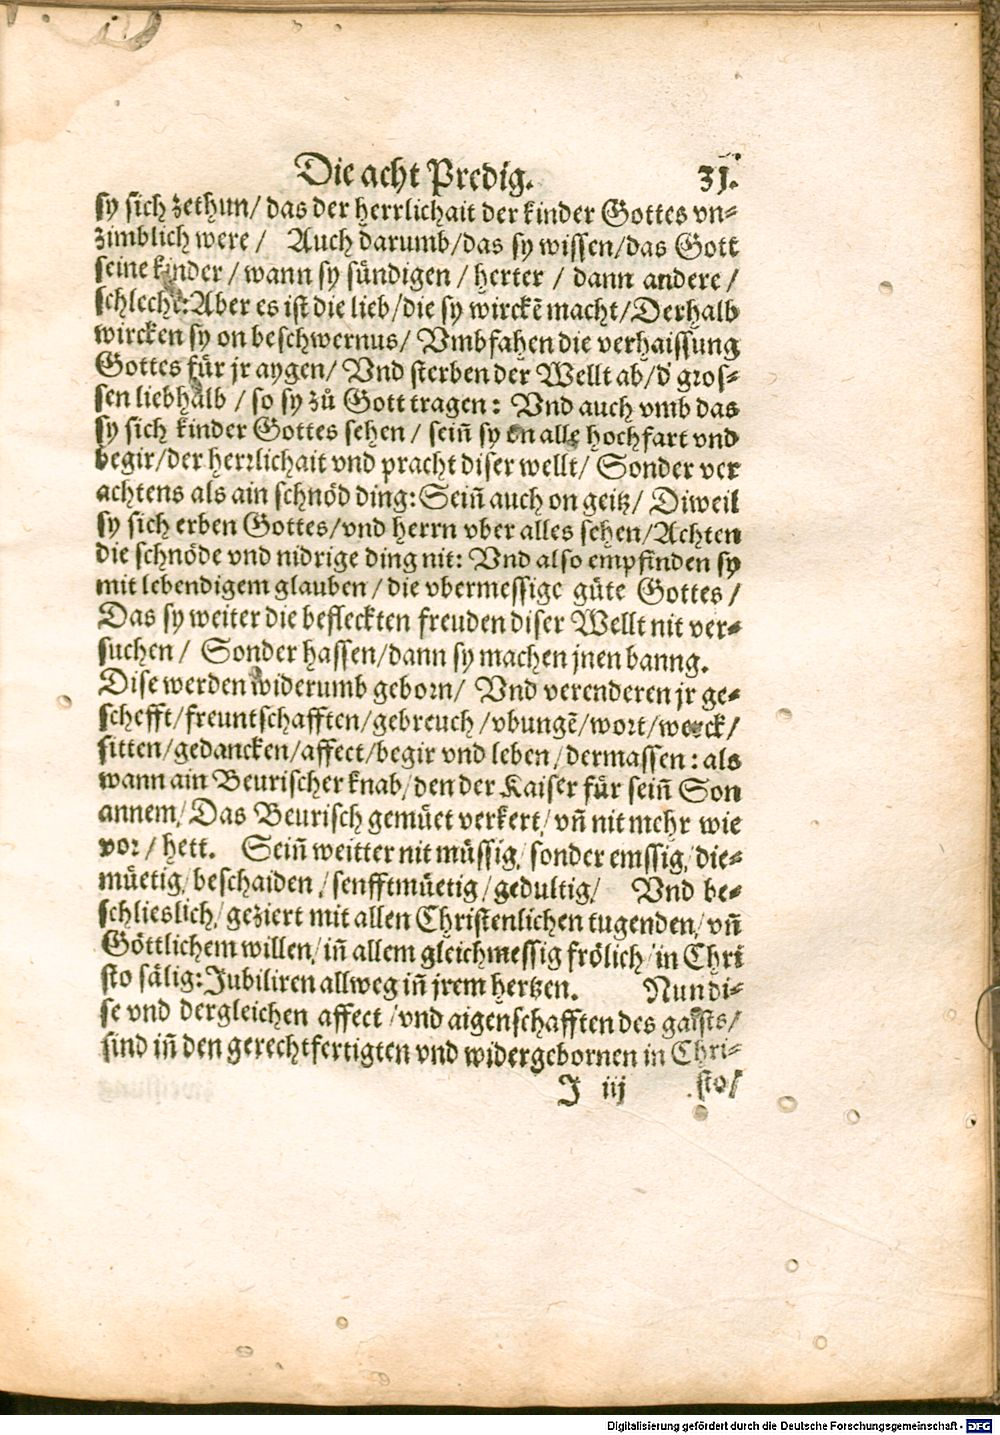 Die acht Predig. 31.
sy sich zethun/ das der herrlichait der kinder Gottes vn-
zimblich were / Auch darumb/das sy wissen/das Gott
seine kinder / wann sy sündigen / herter / dann andere /
schlecht:Aber es ist die lieb/die sy wirckẽ macht/Derhalb
wircken sy on beschwernus/ Vmbfahen die verhaissung
Gottes für jr aygen/ Vnd sterben der Wellt ab/d' gros-
sen liebhalb / so sy zů Gott tragen: Vnd auch vmb das
sy sich kinder Gottes sehen / sein̄ sy on alle hochfart vnd
begir/der herrlichait vnd pracht diser wellt/ Sonder ver
achtens als ain schnöd ding:Sein̄ auch on geitz/ Diweil
sy sich erben Gottes/vnd herrn vber alles sehen/Achten
die schnöde vnd nidrige ding nit: Vnd also empfinden sy
mit lebendigem glauben / die vbermessige güte Gottes /
Das sy weiter die befleckten freuden diser Wellt nit ver-
suchen / Sonder hassen/dann sy machen jnen banng.
Dise werden widerumb geborn/ Vnd verenderen jr ge-
schefft/freuntschafften/gebreuch/vbungẽ/wort/werck/
sitten/gedancken/affect/begir vnd leben/dermassen: als
wann ain Beurischer knab/den der Kaiser für sein̄ Son
annem/Das Beurisch gemüet verkert/vn̄ nit mehr wie
vor/ hett. Sein̄ weitter nit müssig/sonder emssig/die-
müetig/beschaiden/senfftmüetig/gedultig/ Vnd be-
schlieslich/geziert mit allen Christenlichen tugenden/vn̄
Göttlichem willen/in̄ allem gleichmessig frölich/in Chri
sto sälig:Jubiliren allweg in̄ jrem hertzen. Nun di-
se vnd dergleichen affect /vnd aigenschafften des gaists/
sind in̄ den gerechtfertigten vnd widergebornen in Chri-
J iij sto/
Digitalisierung gefördert durch die Deutsche Forschungsgemeinschaft - DFG